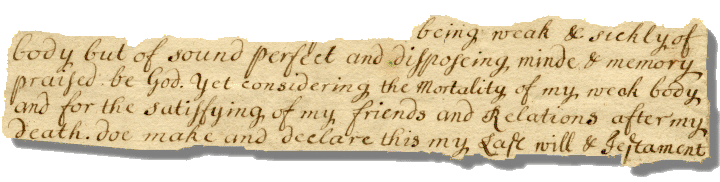 being weak & sickly of
body but of sound perfect and disposeing minde & memory
praised be God. Yet considering the Mortality of my weak body
and for the satisfying of my friends and Relations after my
death. doe make and declare this my Last will & Testament